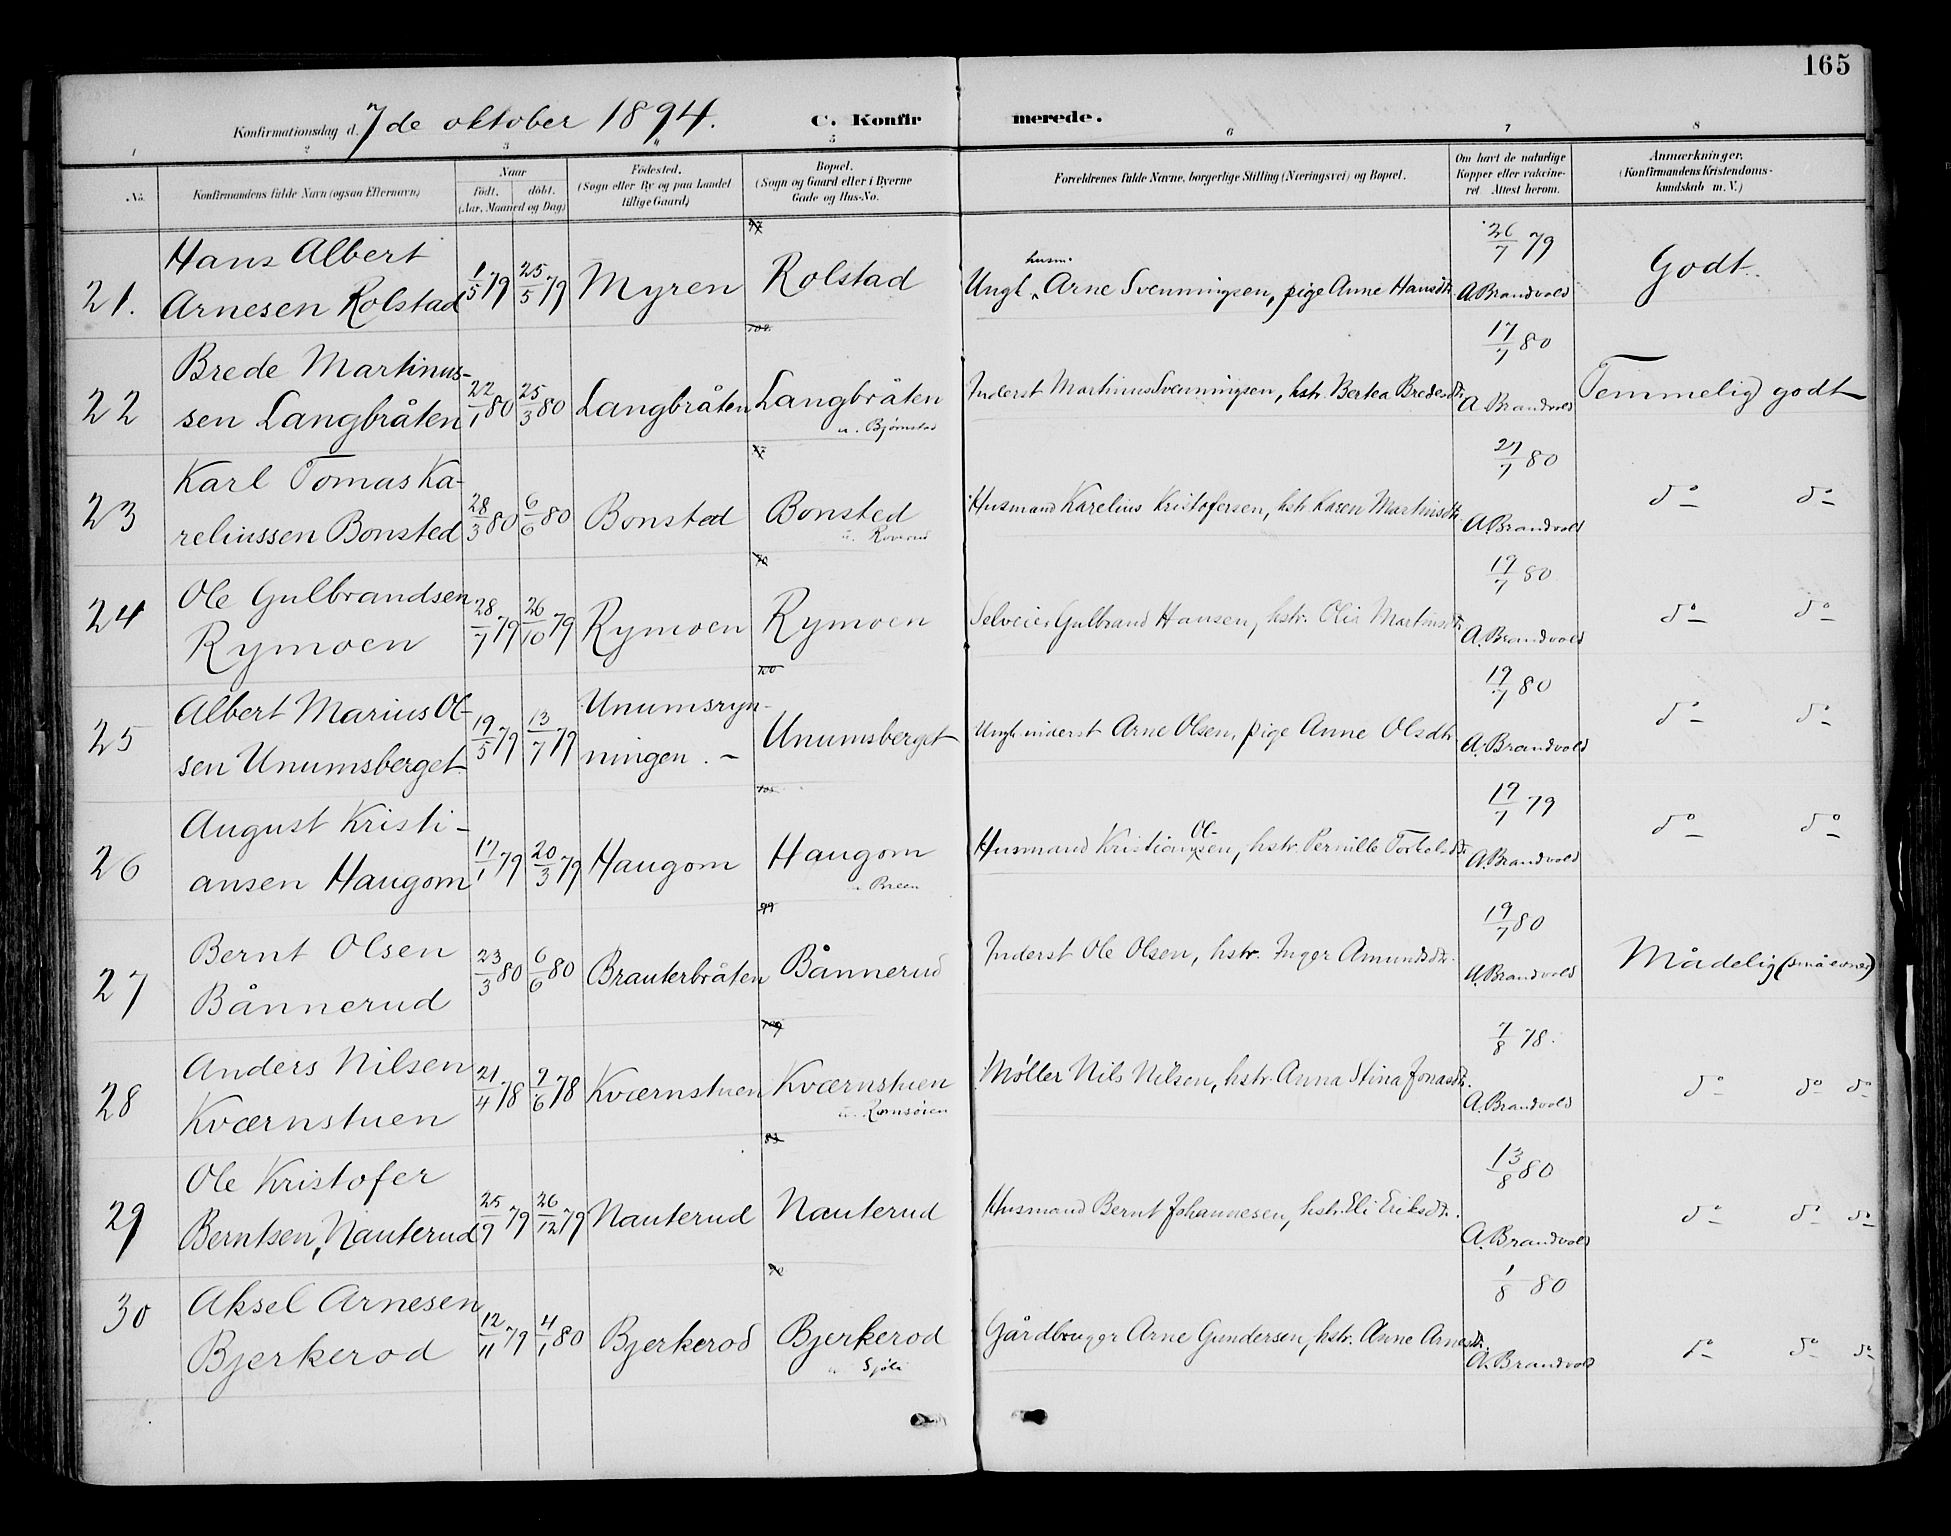 165
Konfirmationsdag d. 7de oktober 1894. C. Konfirmerede.
1 2 3 4 5 6 7 8
No. Konfirmandens fulde Navn (ogsaa Efternavn) Naar født. døbt. (Aar, Maaned og Dag) Fødested. (Sogn eller By og paa Landet tillige Gaard) Bopæl. (Sogn og Gaard eller i Byerne Gade og Hus-No. Forældrenes fulde Navne, borgerlige Stilling (Næringsvei) og Bopæl. Om havt de naturlige Kopper eller vakcineret. Attest herom. Anmærkninger. (Konfirmandens Kristendomskundskab m. V.)
21. Hans Albert Arnesen Rolstad 1/5 79 25/5 79 Myren Rolstad Ungk. husm. Arne Svenningsen, pige Anne Hansdtr. 26/7 79 A. Brandvold Godt.
22 Brede Martinussen Langbråten 22/1 80 25/3 80 Langbråten Langbråten u. Bjørnstad Inderst Martinus Svenningsen, hstr. Bertea Bredesdtr. 17/7 80 A. Brandvold Temmelig godt
23 Karl Tomas Kareliussen Bonsted 28/3 80 6/6 80 Bonsted Bonsted u. Husmand Karelius Kristofersen, hstr. Karen Martinsdtr. 27/7 80 A. Brandvold do do
24 Ole Gulbrandsen Rymoen 28/7 79 26/10 79 Rymoen Rymoen Selveier Gulbrand Hansen, hstr. Olia Martinsdtr. 19/7 80 A. Brandvold do do
25 Albert Marius Olsen Unumsberget 19/5 79 13/7 79 Unumsrynningen. Unumsberget Ungk. inderst Arne Olsen, pige Anne Olsdtr. 19/7 80 A. Brandvold do do
26 August Kristiansen Haugom 17/1 79 20/3 79 Haugom Haugom u. Husmand Kristian Olsen, hstr. Pernille Torkelsdtr. 19/7 79 A. Brandvold do do
27 Bernt Olsen Bånnerud 23/3 80 6/6 80 Brauterbråten Bånnerud Inderst Ole Olsen, hstr. Inger Amundsdtr. 19/7 80 A. Brandvold Mådelig (små evner)
28 Anders Nilsen Kværnstuen 21/4 78 9/6 78 Kværnstuen Kværnstuen u. Møller Nils Nilsen, hstr. Anna Stina Jonasdtr. 7/8 78. A. Brandvold do do do
29 Ole Kristofer Berntsen, Nauterud 25/9 79 26/12 79 Nauterud Nauterud Husmand Bernt Johannesen, hstr. Eli Eriksdtr. 13/8 80 A. Brandvold do do do
30 Aksel Arnesen Bjerkerod 12/11 79 4/1 80 Bjerkerod Bjerkerod u. Sjøli Gårdbruger Arne Gundersen, hstr. Anne Arnesdtr. 1/8 80 A. Brandvold do do do